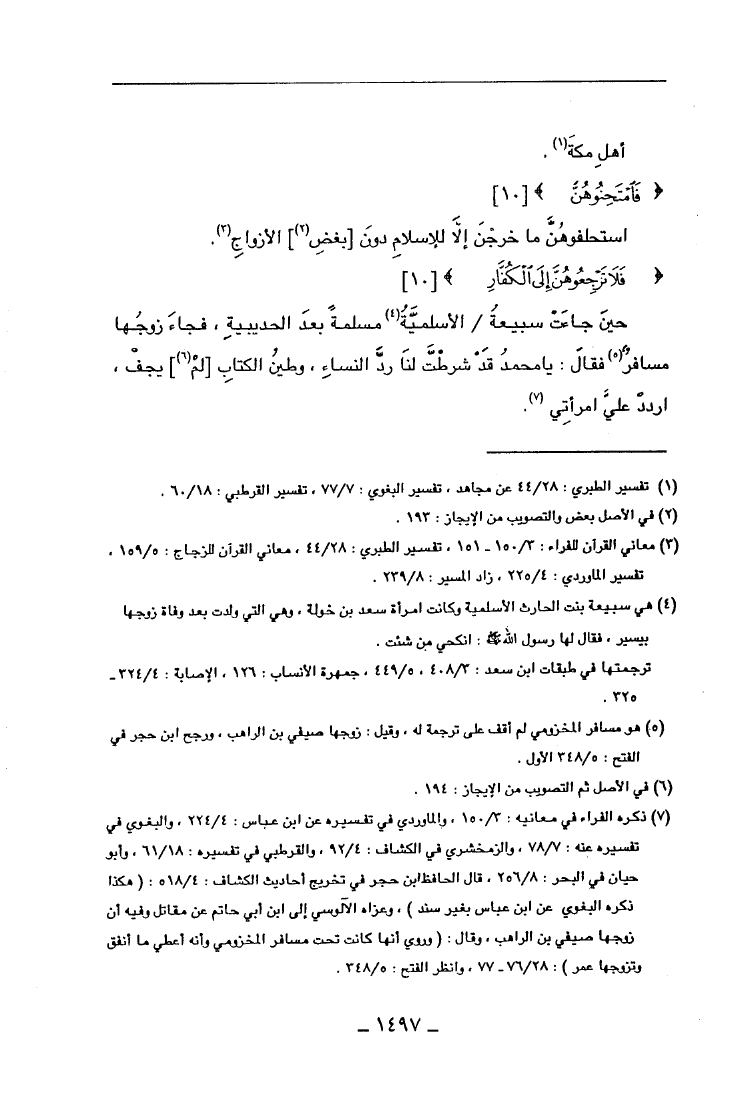 أهلِ مكةَ(١) .
﴿ فَٱمْتَحِنُوهُنَّ ﴾ [١٠]
استحلفوهُنَّ ما خرجْنَ إلَّا للإسلامِ دونَ [بغضِ(٢)] الأزواجِ(٣).
﴿ فَلَا تَرْجِعُوهُنَّ إِلَى ٱلْكُفَّارِ ﴾ [١٠]
حينَ جاءَتْ سبيعةُ / الأسلميَّةُ(٤) مسلمةً بعدَ الحديبيةِ ، فجاءَ زوجُها
مسافرٌ(٥) فقالَ : يامحمدُ قَدْ شرطْتَّ لنَا ردَّ النساءِ ، وطينُ الكتابِ [لمْ(٦)] يجفْ ،
ارددْ عليَّ امرأتِي (٧).
(١) تفسير الطبري : ٤٤/٢٨ عن مجاهد ، تفسير البغوي : ٧٧/٧ ، تفسير القرطبي : ٦٠/١٨ .
(٢) في الأصل بعض والتصويب من الإيجاز : ١٩٣ .
(٣) معاني القرآن للفراء : ١٥٠/٣ ـ ١٥١ ، تفسير الطبري : ٤٤/٢٨ ، معاني القرآن للزجاج : ١٥٩/٥ ،
تفسير الماوردي : ٢٢٥/٤ ، زاد المسير : ٢٣٩/٨ .
(٤) هي سبيعة بنت الحارث الأسلمية وكانت امرأة سعد بن خولة ، وهي التي ولدت بعد وفاة زوجها
بيسير ، فقال لها رسول الله ﷺ : انكحي من شئت .
ترجمتها في طبقات ابن سعد : ٤٠٨/٣ ، ٤٤٩/٥ ، جمهرة الأنساب : ١٢٦ ، الإصابة : ٣٢٤/٤ ـ
٣٢٥ .
(٥) هو مسافر المخزومي لم أقف على ترجمة له ، وقيل : زوجها صيفي بن الراهب ، ورجح ابن حجر في
الفتح : ٣٤٨/٥ الأول .
(٦) في الأصل ثم التصويب من الإيجاز : ١٩٤ .
(٧) ذكره الفراء في معانيه : ١٥٠/٣ ، والماوردي في تفسيره عن ابن عباس : ٢٢٤/٤ ، والبغوي في
تفسيره عنه : ٧٨/٧ ، والزمخشري في الكشاف : ٩٢/٤ ، والقرطبي في تفسيره : ٦١/١٨ ، وأبو
حيان في البحر : ٢٥٦/٨ ، قال الحافظ ابن حجر في تخريج أحاديث الكشاف : ٥١٨/٤ : ( هكذا
ذكره البغوي عن ابن عباس بغير سند ) ، وعزاه الآلوسي إلى ابن أبي حاتم عن مقاتل وفيه أن
زوجها صيفي بن الراهب ، وقال : ( وروي أنها كانت تحت مسافر المخزومي وأنه أعطي ما أنفق
وتزوجها عمر ) : ٧٦/٢٨ ـ ٧٧ ، وانظر الفتح : ٣٤٨/٥ .
ـ ١٤٩٧ ـ